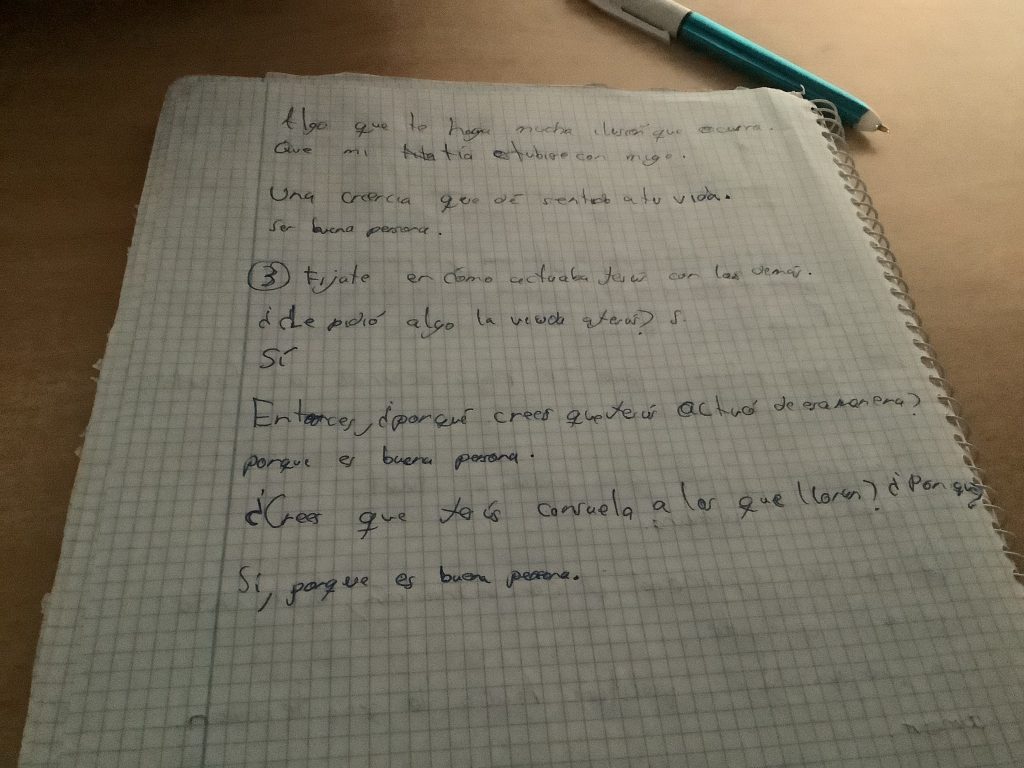 Algo que te haga mucha ilusión que ocurra.
Que mi tía estubiese con migo.
Una creencia que dé sentido a tu vida.
Ser buena persona.
3 Fijate en cómo actuaba Jesús con los demás.
¿Le pidió algo la viuda a Jesús? S.
Sí
Entonces, ¿porqué crees que Jesús actuó de esa manera?
porque es buena persona.
¿Crees que Jesús consuela a los que lloran? ¿Por qué?
Sí, porque es buena persona.